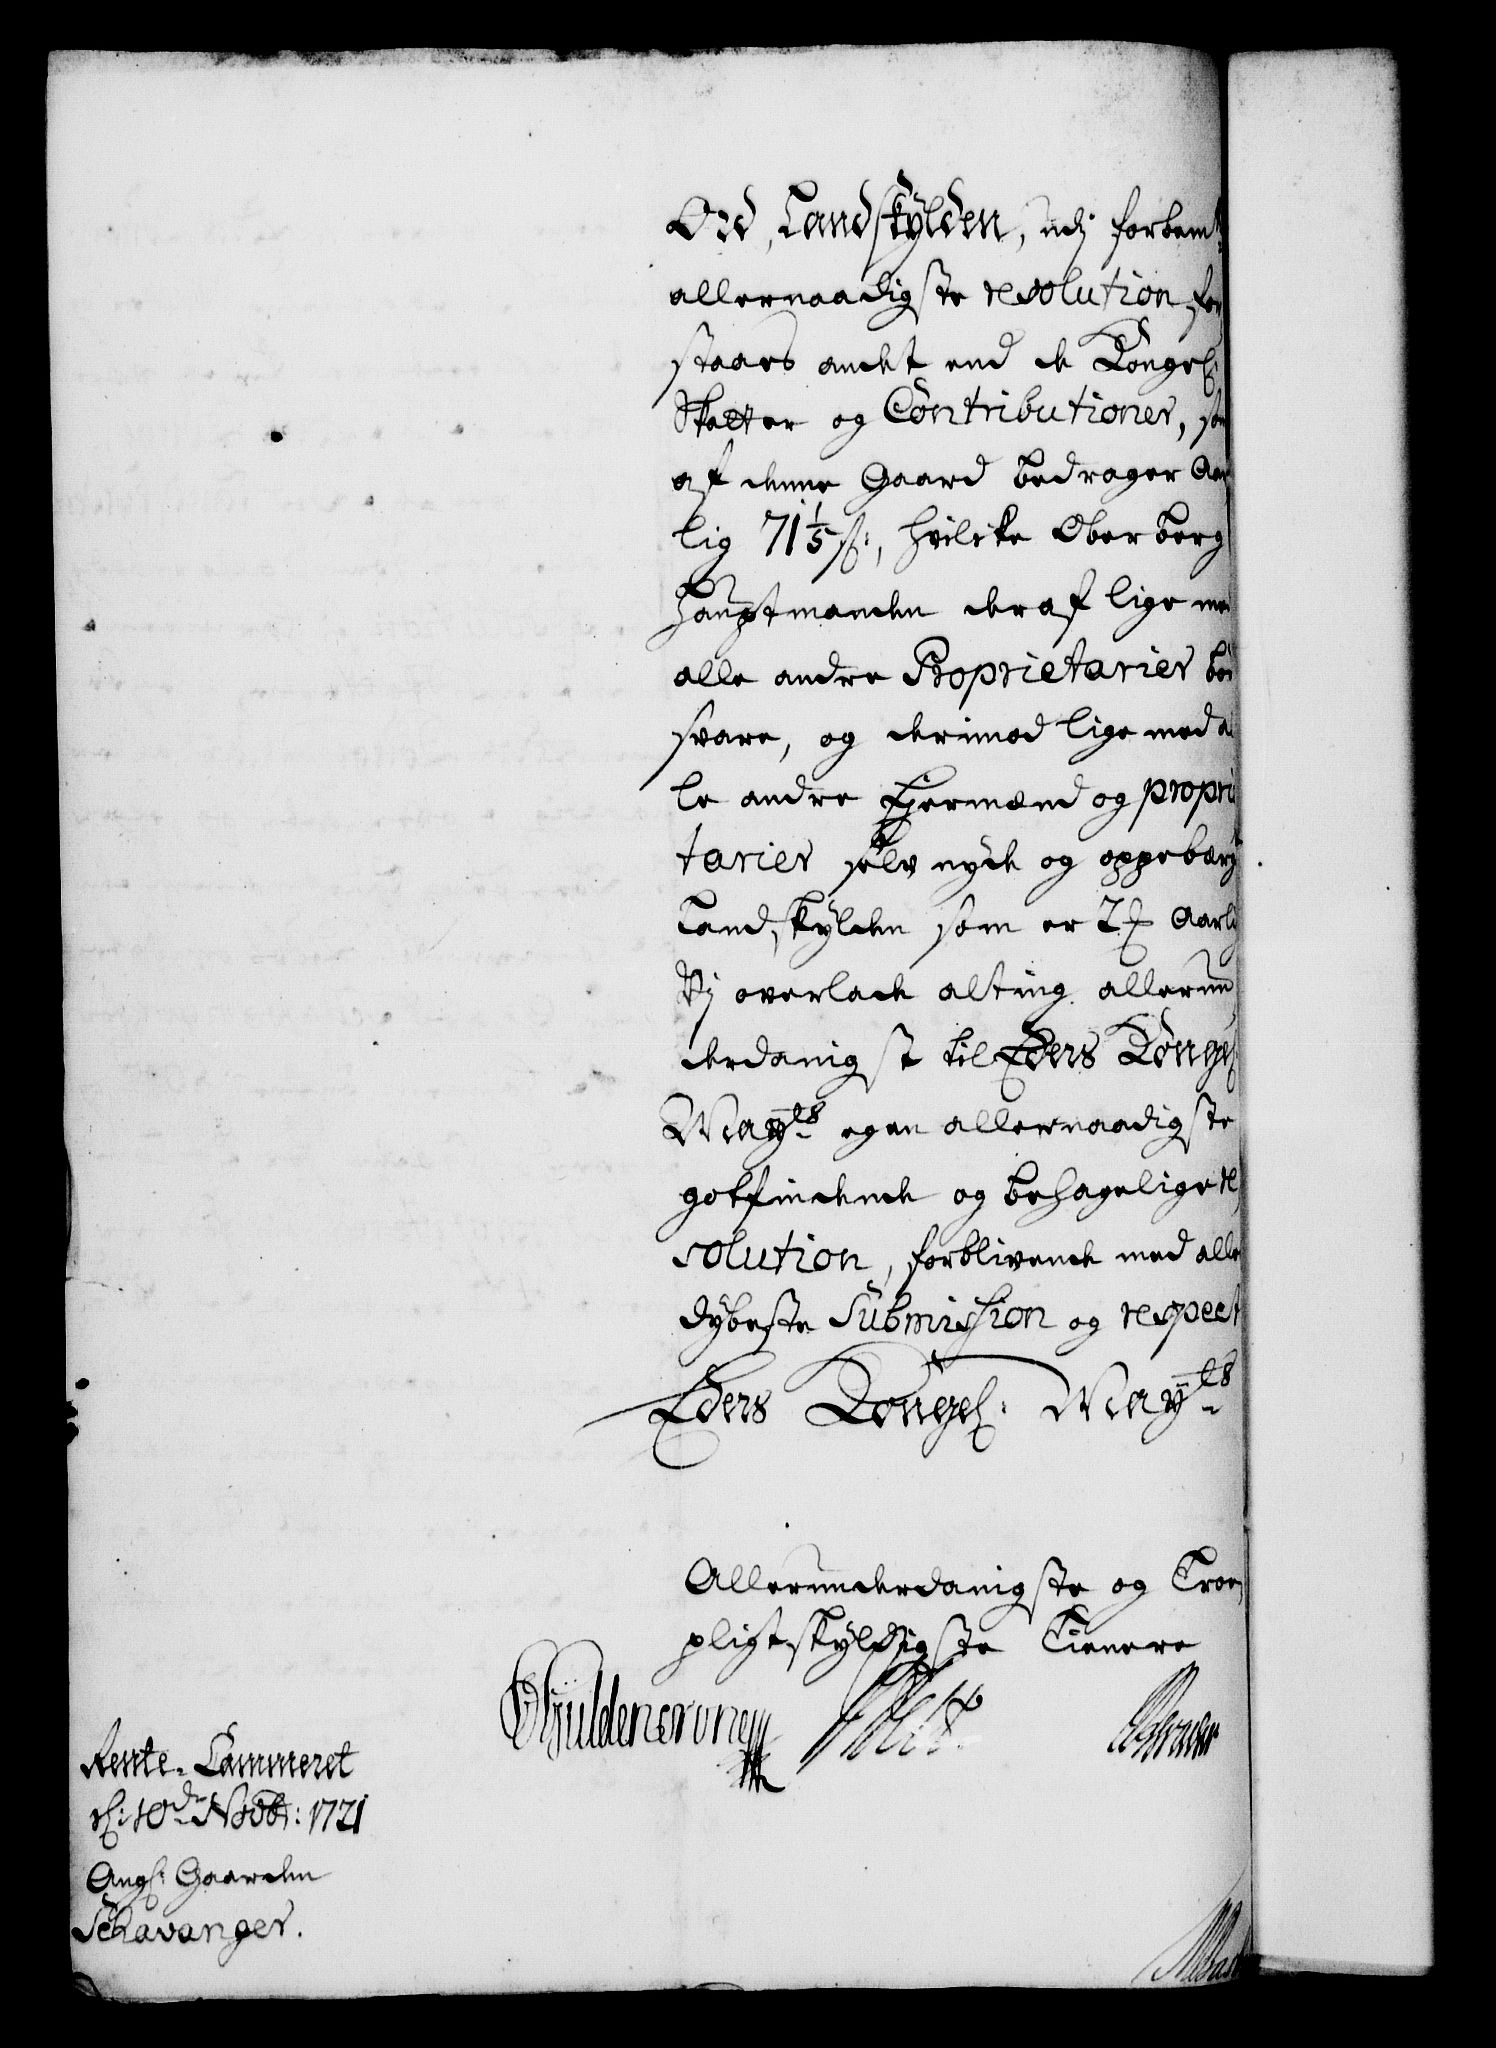 Ord, Landskylden, udj forbem
allernaadigste resolution for
staaes andet end de Kongel:
Skatter og Contributioner, som
af denne Gaard bedrager Aar
lig 71 1/5 s:, hvilcke Ober Berg
hauptmanden deraf lige med
alle andre Proprietarier bør
svare, og derimod lige med al
le andre Ejermænd og proprie
tarier selv nyde og oppebærge
Landskylden som er Aarlig
Vj overlade alting allerun
derdanigst til Eders Kongel
Mayts egen allernaadigste
gotfindende og behagelige re
solution, forblivende med aller
dybeste Submission og respect
Eders Kongel: Mayts
Allerunderdanigste og Troe
pligtskyldigste Tienere
Gyldencrone
Rente-Cammeret
d: 10de Novb: 1721
Ang: Gaarden
Schavanger.